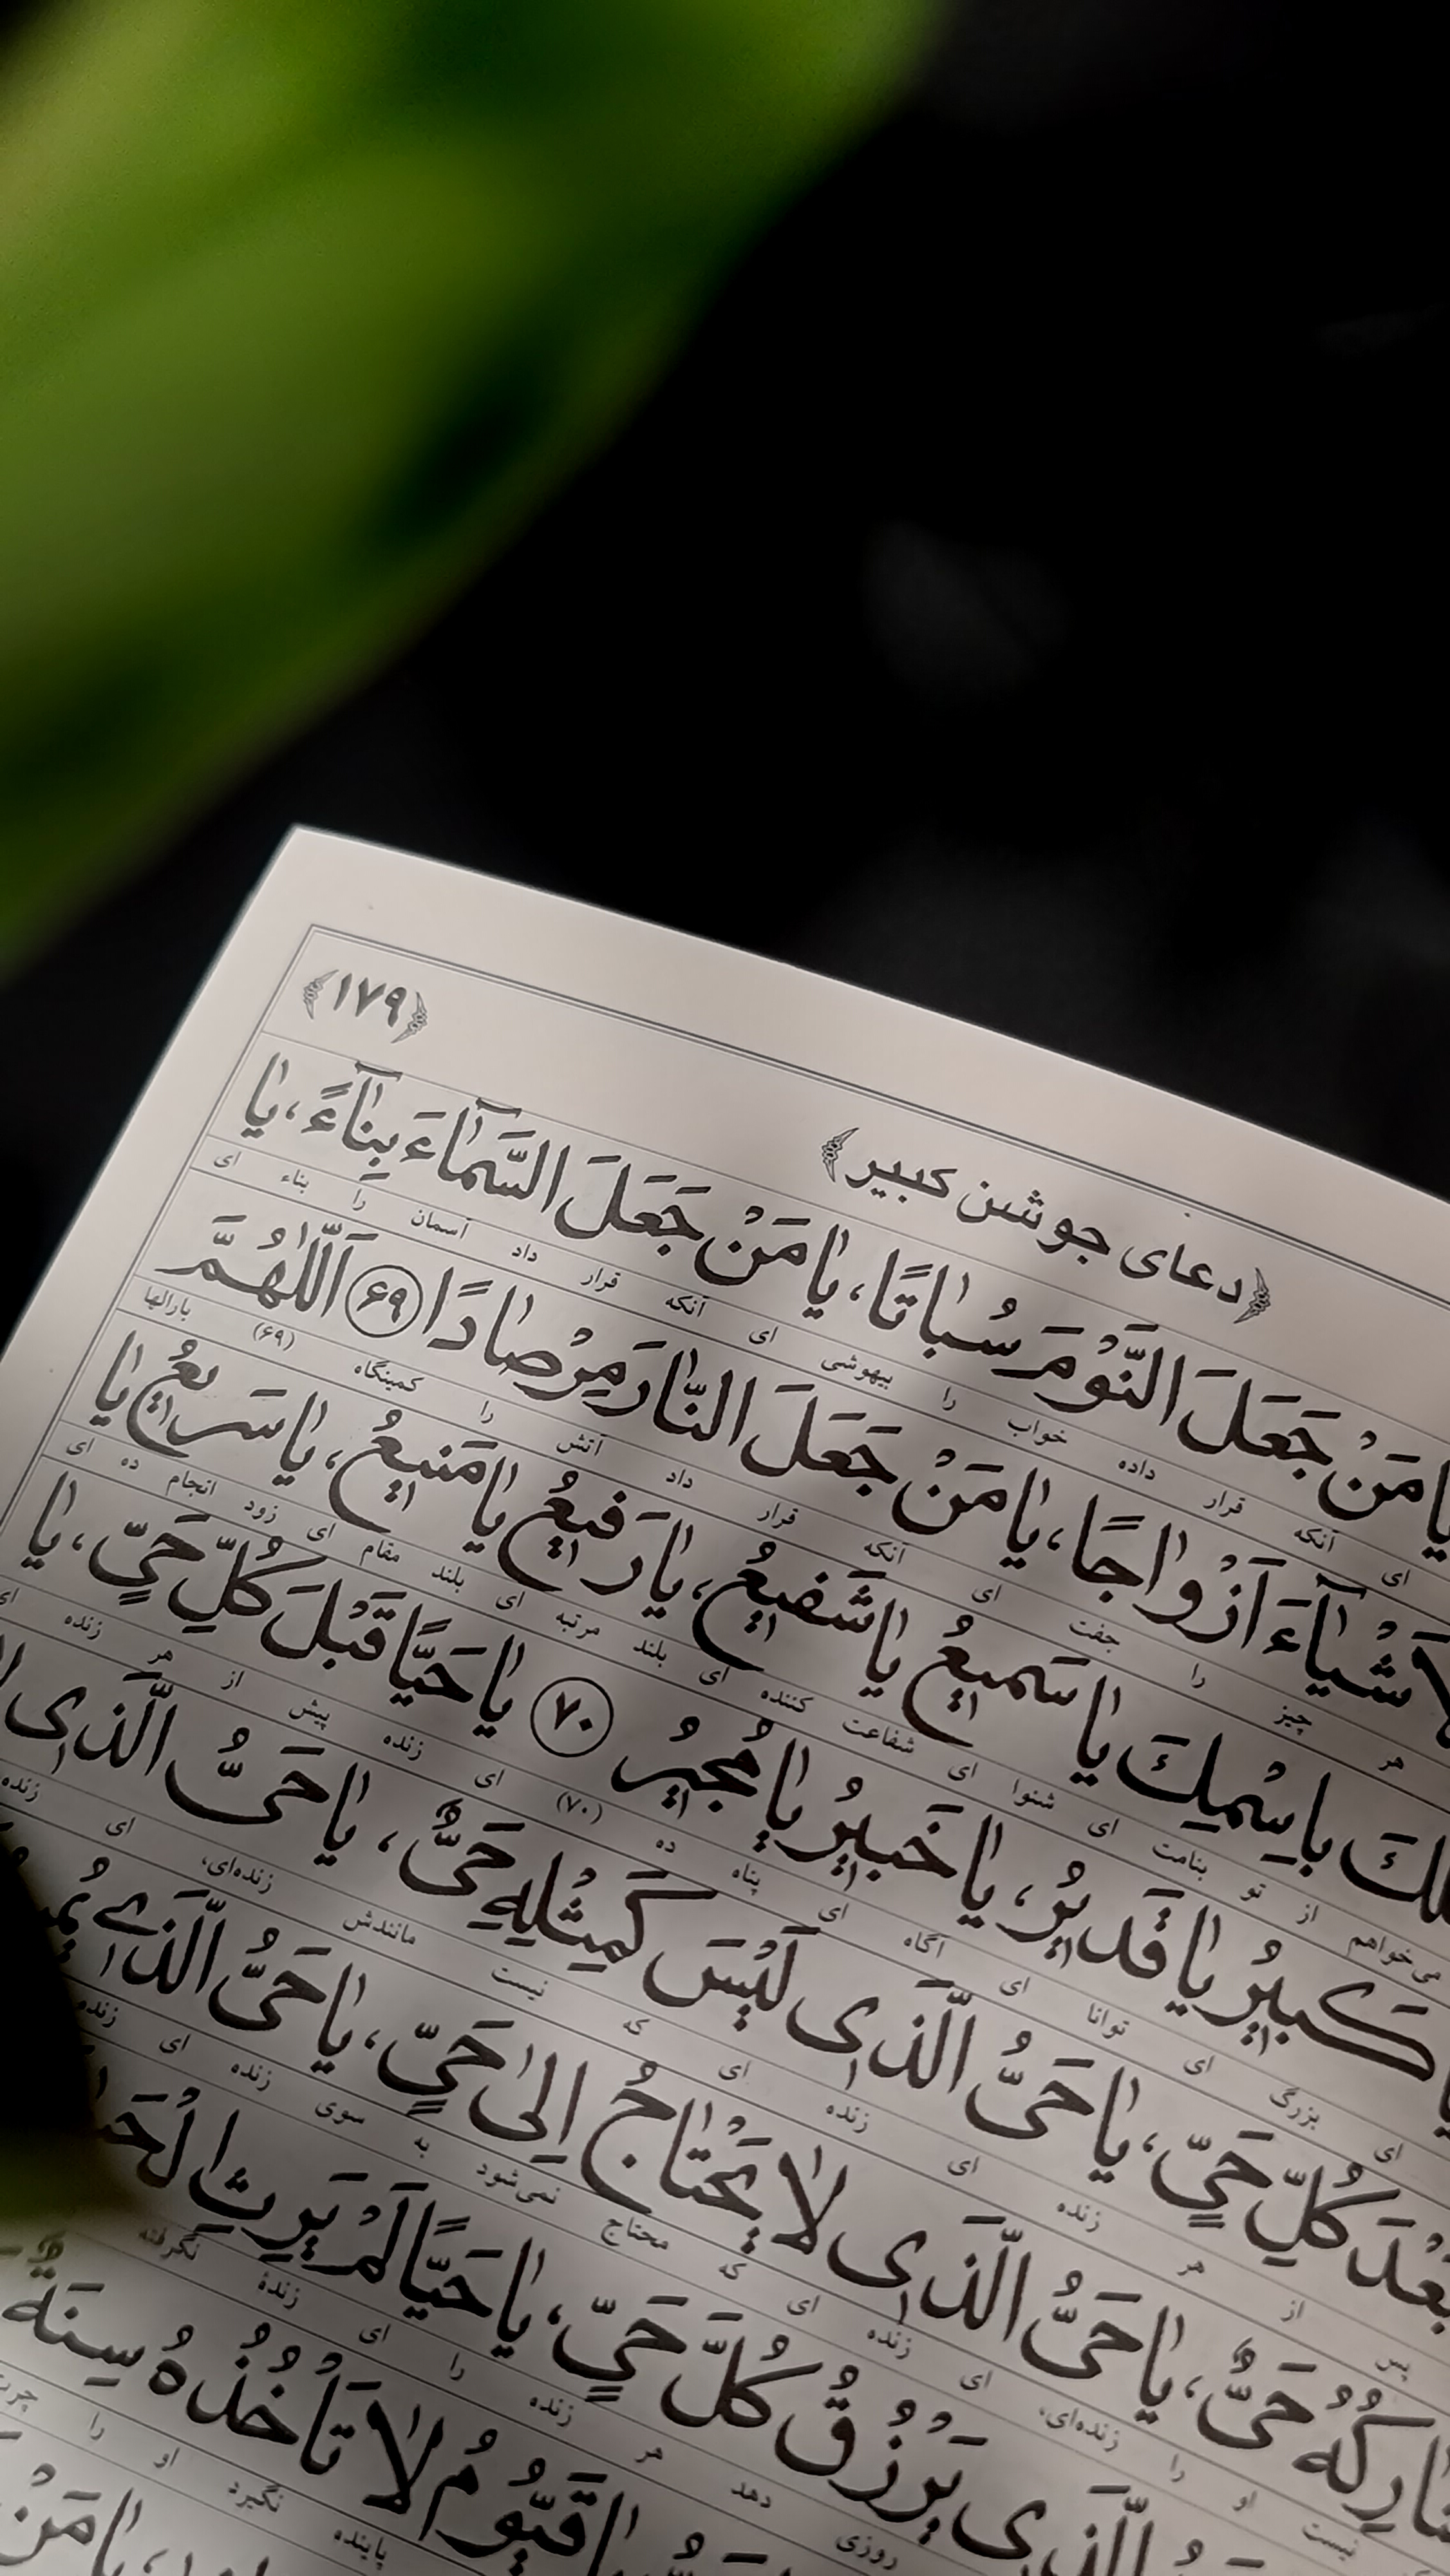 ﴿۱۷۹﴾
﴿دعای جوشن کبیر﴾
یا مَنْ جَعَلَ النَّوْمَ سُباتًا، یا مَنْ جَعَلَ السَّمآءَ بِنآءً، یا
ای آنکه قرار داده خواب را بیهوشی ای آنکه قرار داد آسمان را بناء ای
الْاَشْیآءَ اَزْواجًا، یا مَنْ جَعَلَ النّارَ مِرْصادًا ۶۹ اَللّهُمَّ
هر چیز را جفت ای آنکه قرار داد آتش را کمینگاه (۶۹) بارالها
بِاسْمِكَ یا سَمیعُ یا شَفیعُ، یا رَفیعُ یا مَنیعُ، یا سَریعُ یا
می‌خواهم از تو بنامت ای شنوا ای شفاعت کننده ای بلند مرتبه ای بلند مقام ای زود انجام ده ای
کَبیرُ یا قَدیرُ، یا خَبیرُ یا مُجیرُ ۷۰ یا حَیًّا قَبْلَ کُلِّ حَیٍّ، یا
ای بزرگ ای توانا ای آگاه ای پناه ده (۷۰) ای زنده پیش از هر زنده ای
بَعْدَ کُلِّ حَیٍّ، یا حَیُّ الَّذی لَیْسَ کَمِثْلِهِ حَیٌّ، یا حَیُّ الَّذی
پس از هر زنده ای زنده ای که نیست مانندش زنده‌ای، ای زنده
حَیٌّ، یا حَیُّ الَّذی لا یَحْتاجُ اِلی حَیٍّ، یا حَیُّ الَّذی
نیست او را زنده‌ای، ای زنده ای که محتاج نمی‌شود به سوی زنده ای زنده
الَّذی یَرْزُقُ کُلَّ حَیٍّ، یا حَیًّا لَمْ یَرِثِ
روزی دهد هر زنده را ای زندهٔ نگرفته
قَیُّومُ لا تَأْخُذُهُ سِنَةٌ
پاینده نگیرد او را
یا مَنْ